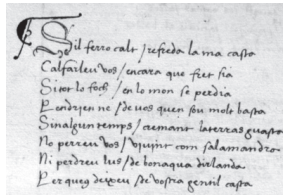 Sil ferro calt / refreda la ma casta
Calfarleu vos / encara que fret sia
Si tot lo foch / en lo mon se perdia
Pendrien ne / de vos quen sou molt basta
Sin algun temps / cremant la terras guasta
No perreu vos / vivint com salamandra
Ni perdreu lus / de bonaqua dirlanda
Per queus deixeu / de vostra gentil casta